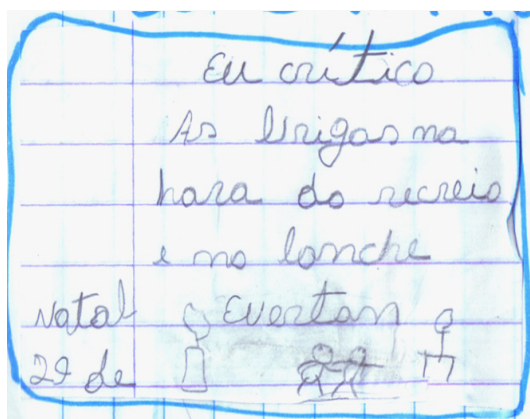 Eu crítico
As brigas na
hora do recreio
e no lanche
Natal Evertan
29 de